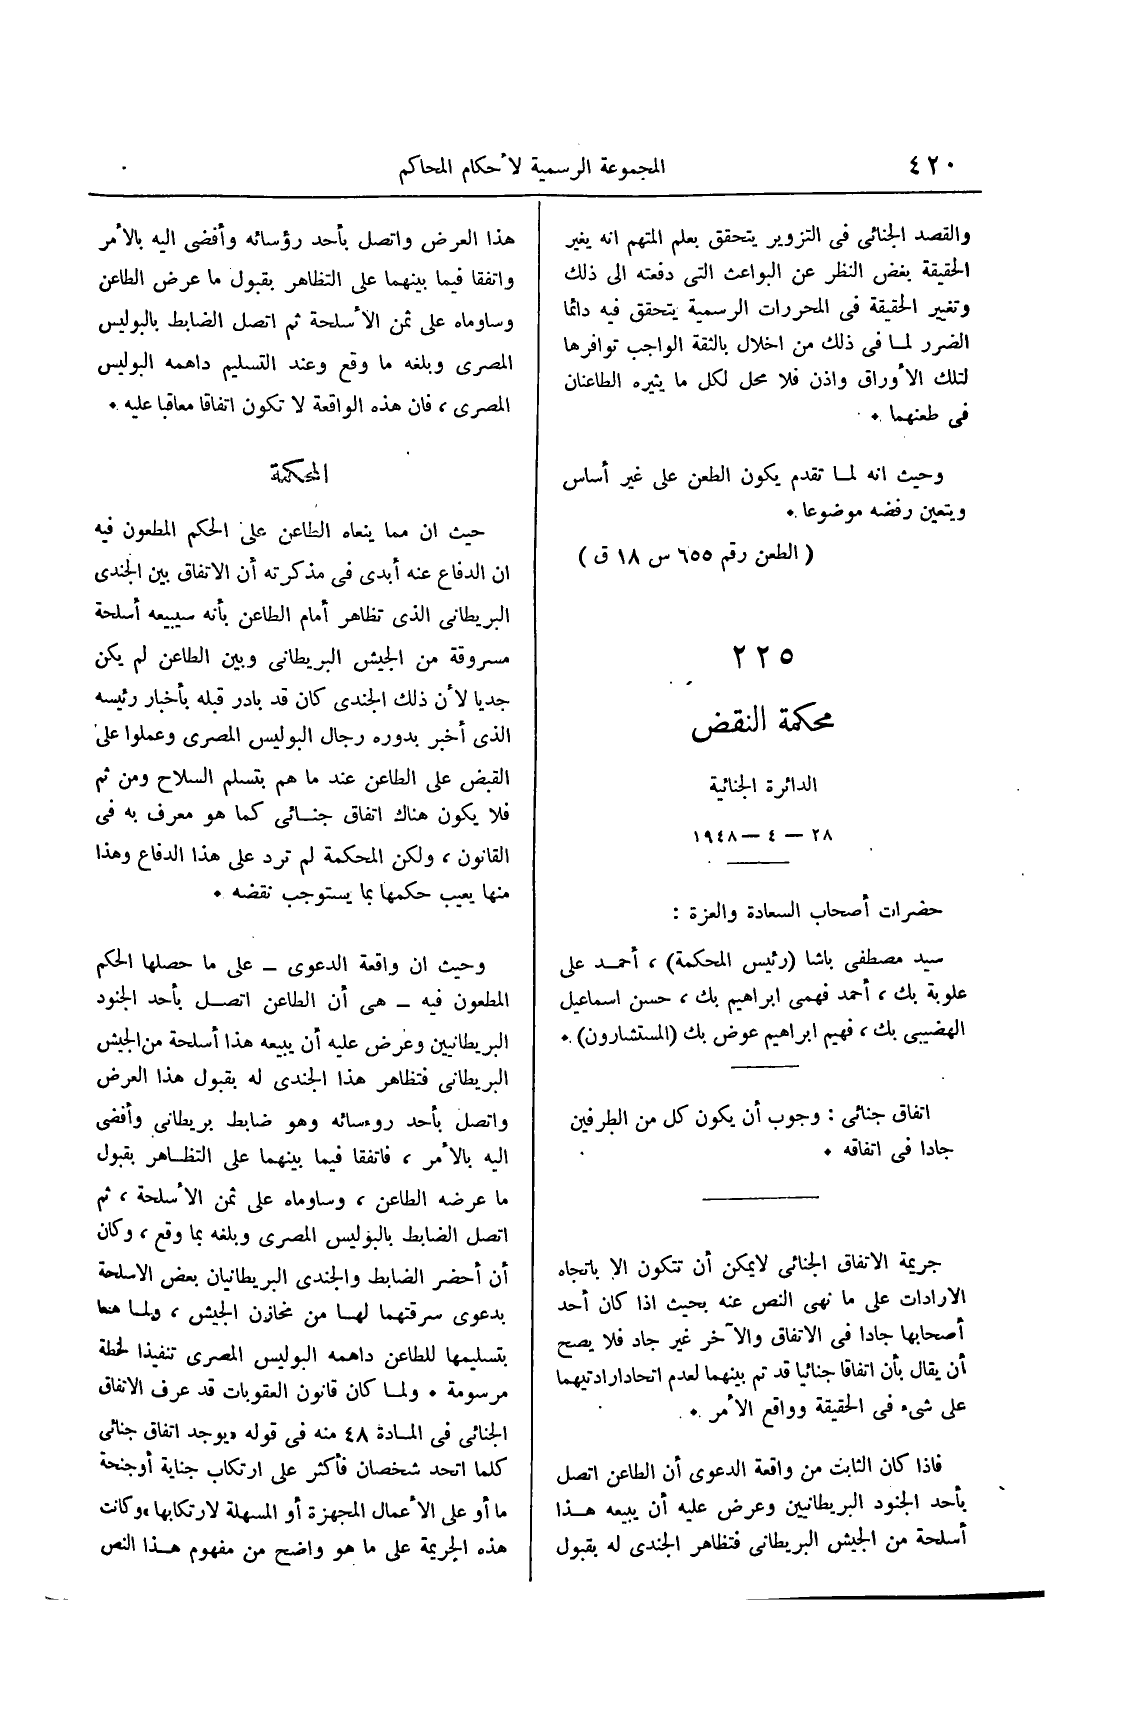 ٤٢٠
المجموعة الرسمية لأحكام المحاكم
والقصد الجنائى فى التزوير يتحقق بعلم المتهم انه يغير
الحقيقة بغض النظر عن البواعث التى دفعته الى ذلك
وتغيير الحقيقة فى المحررات الرسمية يتحقق فيه دائما
الضرر لما فى ذلك من اخلال بالثقة الواجب توافرها
لتلك الأوراق واذن فلا محل لكل ما يثيره الطاعنان
فى طعنهما ٠
وحيث انه لما تقدم يكون الطعن على غير أساس
ويتعين رفضه موضوعا ٠
( الطعن رقم ٦٥٥ س ١٨ ق )
٢٢٥
محكمة النقض
الدائرة الجنائية
٢٨ – ٤ – ١٩٤٨
حضرات أصحاب السعادة والعزة :
سيد مصطفى باشا (رئيس المحكمة) ، أحمد على
علوبة بك ، أحمد فهمى ابراهيم بك ، حسن اسماعيل
الهضيبى بك ، فهيم ابراهيم عوض بك (المستشارون) ٠
اتفاق جنائى : وجوب أن يكون كل من الطرفين
جادا فى اتفاقه ٠
جريمة الاتفاق الجنائى لايمكن أن تتكون الا باتجاه
الارادات على ما نهى النص عنه بحيث اذا كان أحد
أصحابها جادا فى الاتفاق والآخر غير جاد فلا يصح
أن يقال بأن اتفاقا جنائيا قد تم بينهما لعدم اتحادارادتيهما
على شىء فى الحقيقة وواقع الأمر ٠
فاذا كان الثابت من واقعة الدعوى أن الطاعن اتصل
بأحد الجنود البريطانيين وعرض عليه أن يبيعه هذا
أسلحة من الجيش البريطانى فتظاهر الجندى له بقبول
هذا العرض واتصل بأحد رؤسائه وأفضى اليه بالأمر
واتفقا فيما بينهما على التظاهر بقبول ما عرض الطاعن
وساوماه على ثمن الأسلحة ثم اتصل الضابط بالبوليس
المصرى وبلغه ما وقع وعند التسليم داهمه البوليس
المصرى ، فان هذه الواقعة لا تكون اتفاقا معاقبا عليه ٠
المحكمة
حيث ان مما ينعاه الطاعن على الحكم المطعون فيه
ان الدفاع عنه أبدى فى مذكرته أن الاتفاق بين الجندى
البريطانى الذى تظاهر أمام الطاعن بأنه سيبيعه أسلحة
مسروقة من الجيش البريطانى وبين الطاعن لم يكن
جديا لأن ذلك الجندى كان قد بادر قبله بأخبار رئيسه
الذى أخبر بدوره رجال البوليس المصرى وعملوا على
القبض على الطاعن عند ما هم بتسلم السلاح ومن ثم
فلا يكون هناك اتفاق جنائى كما هو معرف به فى
القانون ، ولكن المحكمة لم ترد على هذا الدفاع وهذا
منها يعيب حكمها بما يستوجب نقضه ٠
وحيث ان واقعة الدعوى – على ما حصلها الحكم
المطعون فيه – هى أن الطاعن اتصل بأحد الجنود
البريطانيين وعرض عليه أن يبيعه هذا أسلحة من الجيش
البريطانى فتظاهر هذا الجندى له بقبول هذا العرض
واتصل بأحد روءسائه وهو ضابط بريطانى وأفضى
اليه بالأمر ، فاتفقا فيما بينهما على التظاهر بقبول
ما عرضه الطاعن ، وساوماه على ثمن الأسلحة ، ثم
اتصل الضابط بالبوليس المصرى وبلغه بما وقع ، وكان
أن أحضر الضابط والجندى البريطانيان بعض الاسلحة
بدعوى سرقتهما لها من مخازن الجيش ، ولما هما
بتسليمها للطاعن داهمه البوليس المصرى تنفيذا لخطة
مرسومة ٠ ولما كان قانون العقوبات قد عرف الاتفاق
الجنائى فى المادة ٤٨ منه فى قوله «يوجد اتفاق جنائى
كلما اتحد شخصان فأكثر على ارتكاب جناية أوجنحة
ما أو على الأعمال المجهزة أو المسهلة لارتكابها» وكانت
هذه الجريمة على ما هو واضح من مفهوم هذا النص